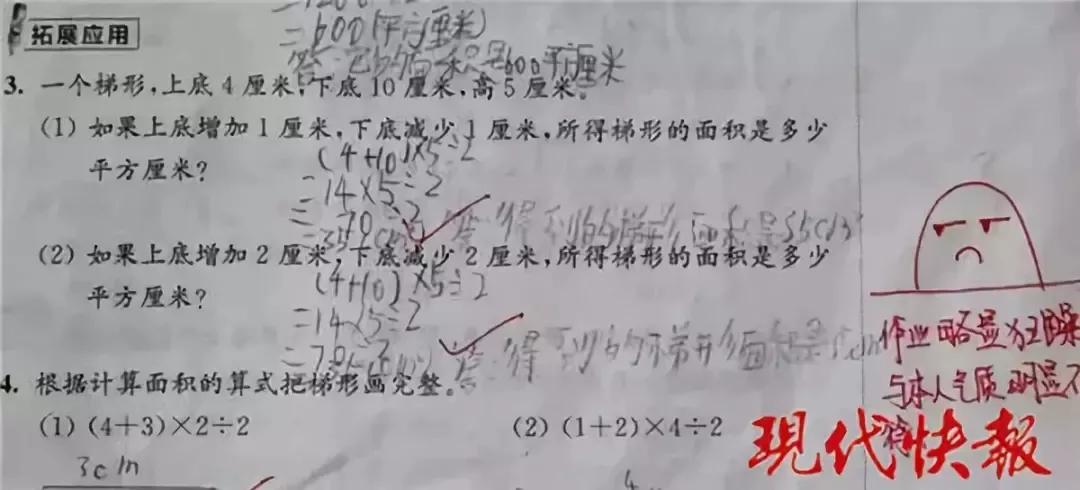 =600(平方厘米)
拓展应用
答:它的面积是600平方厘米
3. 一个梯形,上底4厘米,下底10厘米,高5厘米。
(1) 如果上底增加1厘米,下底减少1厘米,所得梯形的面积是多少
平方厘米?
(4+10)×5÷2
=14×5÷2
=70÷2
答:得到的梯形面积是35cm²
(2) 如果上底增加2厘米,下底减少2厘米,所得梯形的面积是多少
平方厘米?
(4+10)×5÷2
=14×5÷2
=70÷2
答:得到的梯形面积是
作业略显狂躁
与本人气质明显不
符
4. 根据计算面积的算式把梯形画完整。
(1) (4+3)×2÷2
(2) (1+2)×4÷2
3cm
4
現代快報